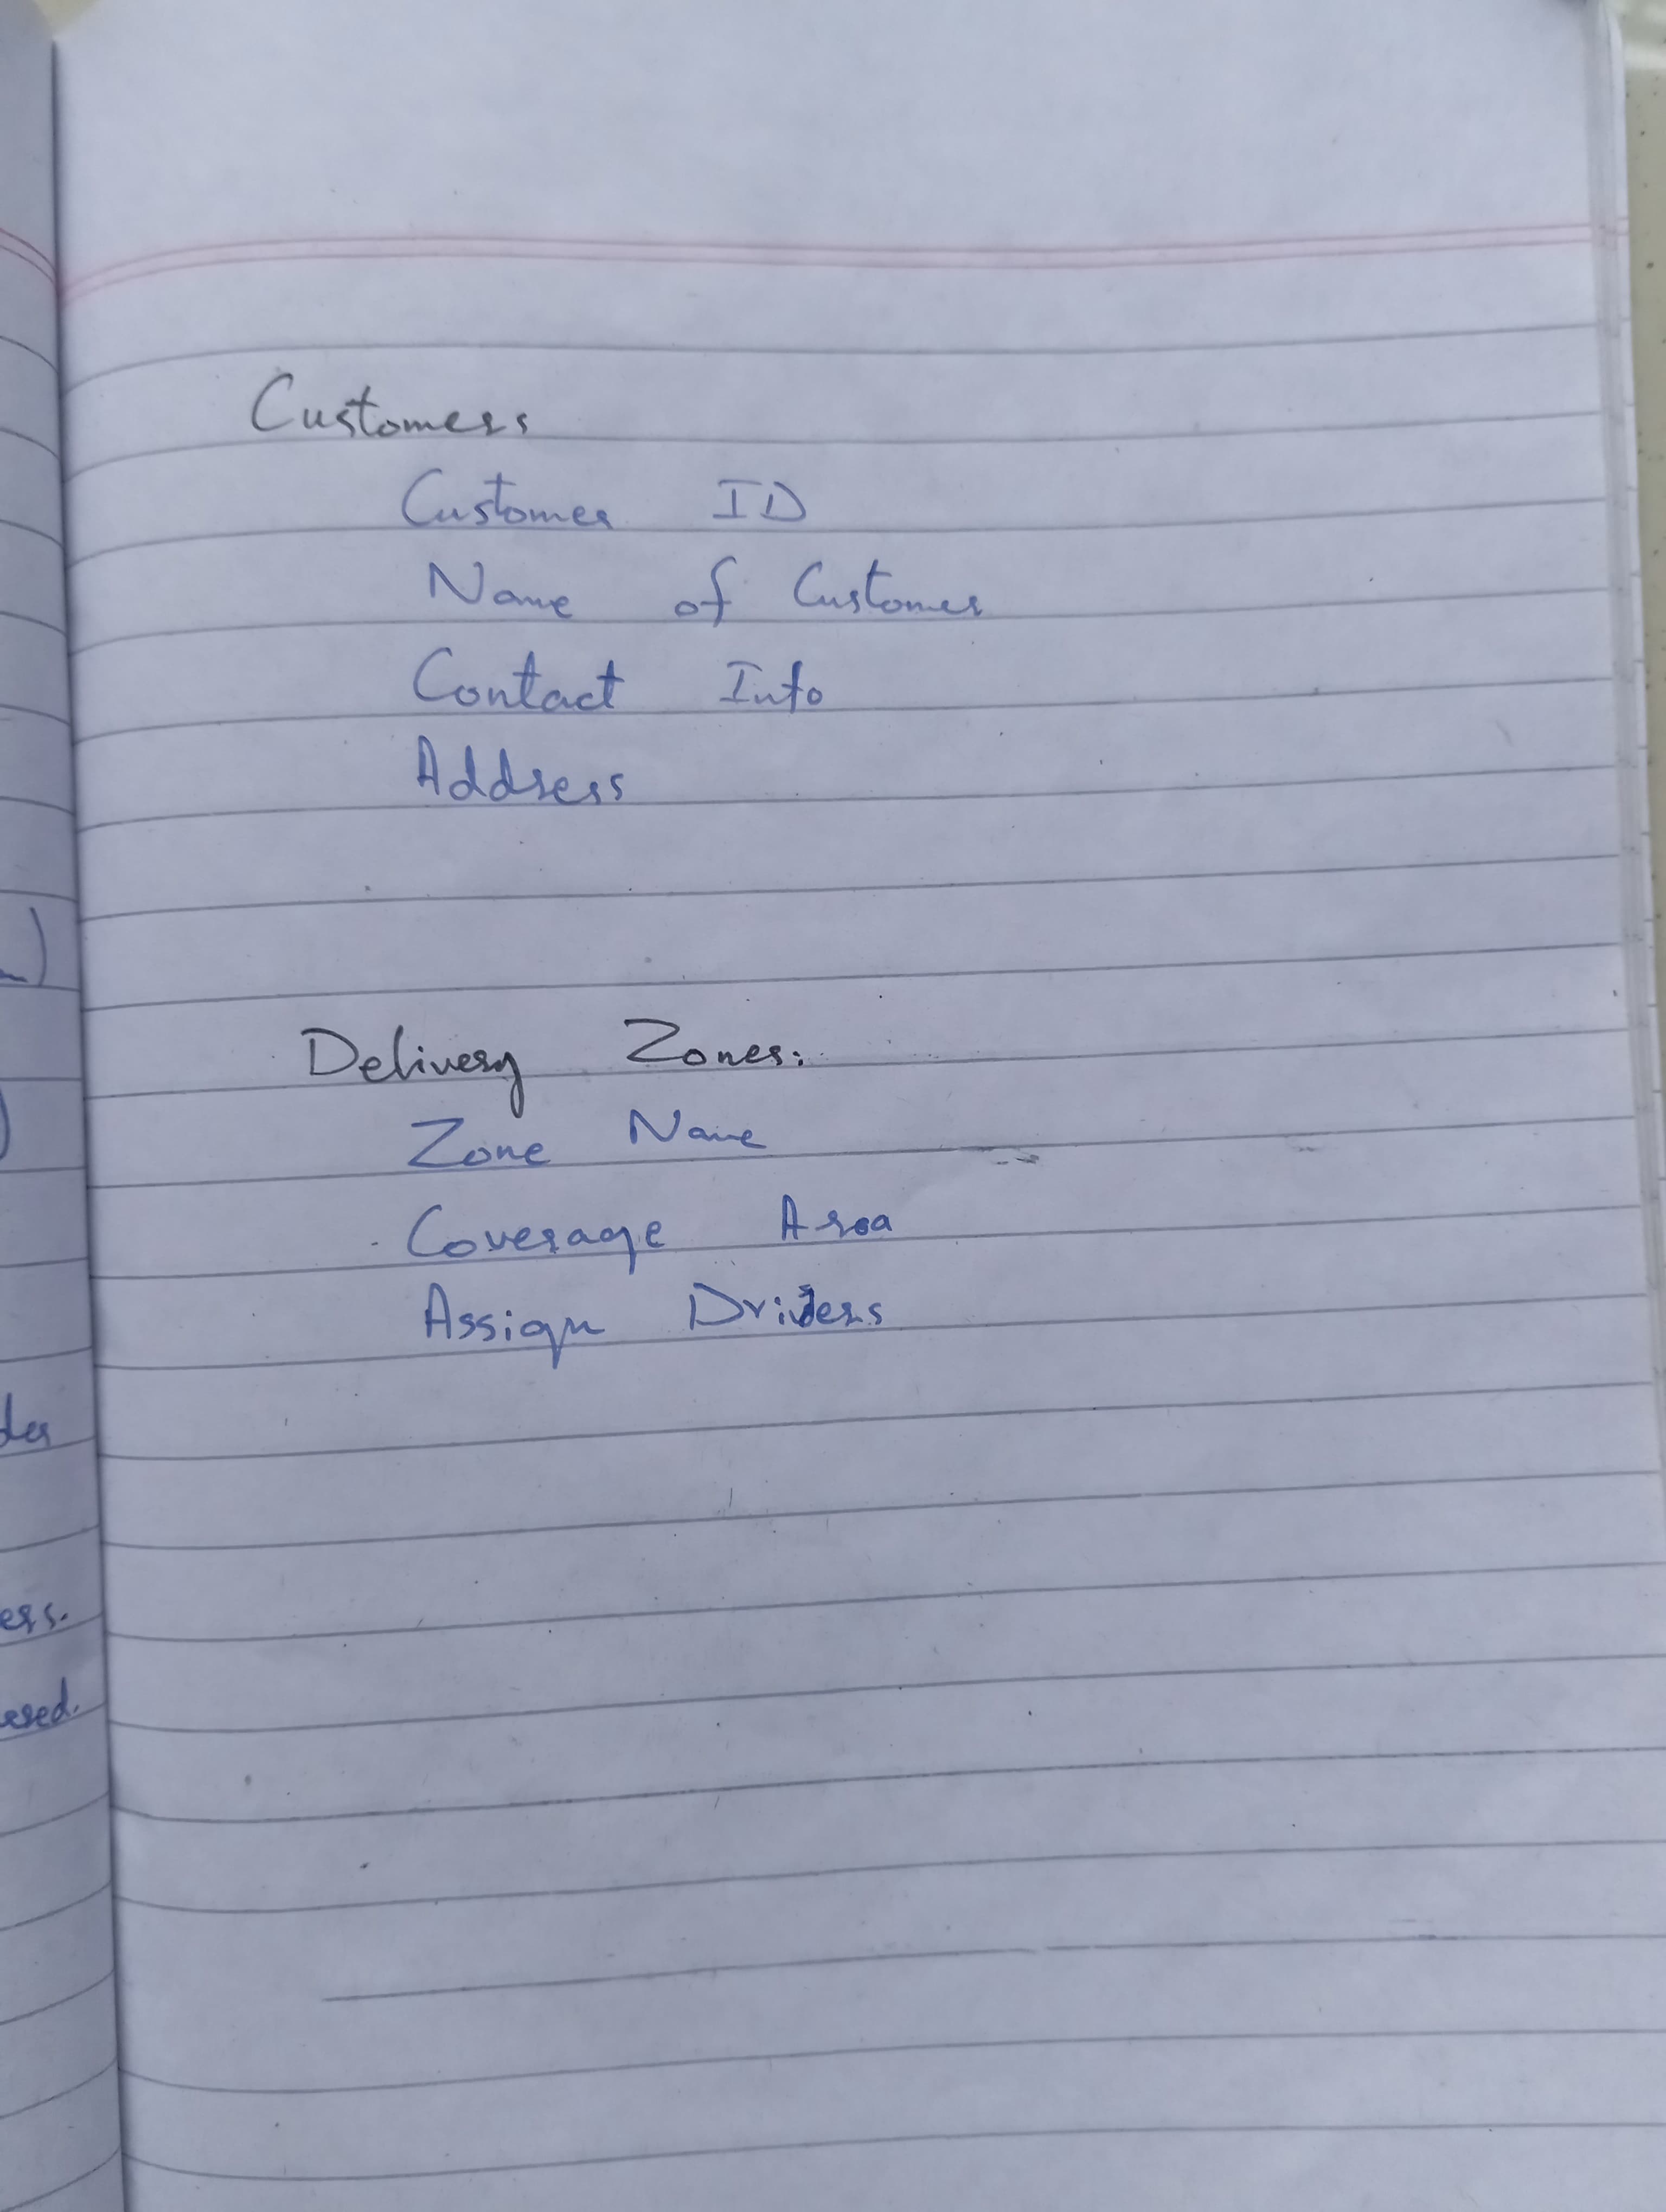 Customers
Customer ID
Name of Customer
Contact Info
Address
Delivery Zones:
Zone Name
Coverage Area
Assign Drivers